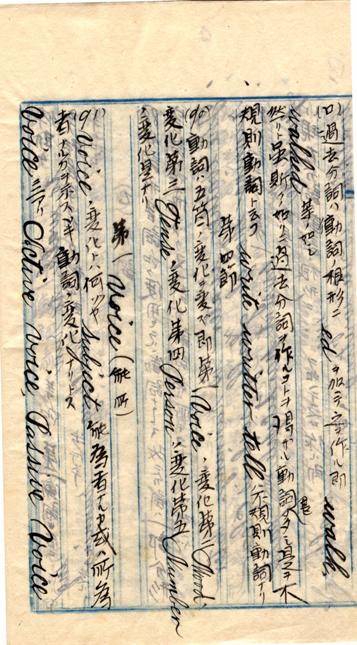 (八)過去分詞ハ動詞ノ根形ニ ed ヲ加ヘテ之ヲ作ル即 walk,
walked 等ノ如シ
然リト雖斯ノ如ク過去分詞ヲ作ルコト得ザル動詞多シ是ヲ不
規則動詞ト云フ write written tell ハ不規則動詞ナリ
第四節
(九)動詞ハ五箇ノ変化ヲ受ク即第一 Voice ノ変化第二 Mood ノ
変化第三 Tense ノ変化第四 Person ノ変化第五 Number
ノ変化是ナリ
第一 Voice (能所)
(十) Voice ノ変化トハ何ゾヤ Subject ノ能為者ナルカ或ハ所為
者ナルカヲ示ス 動詞ノ変化ナリトス
Voice ニ二アリ Active Voice, Passive Voice